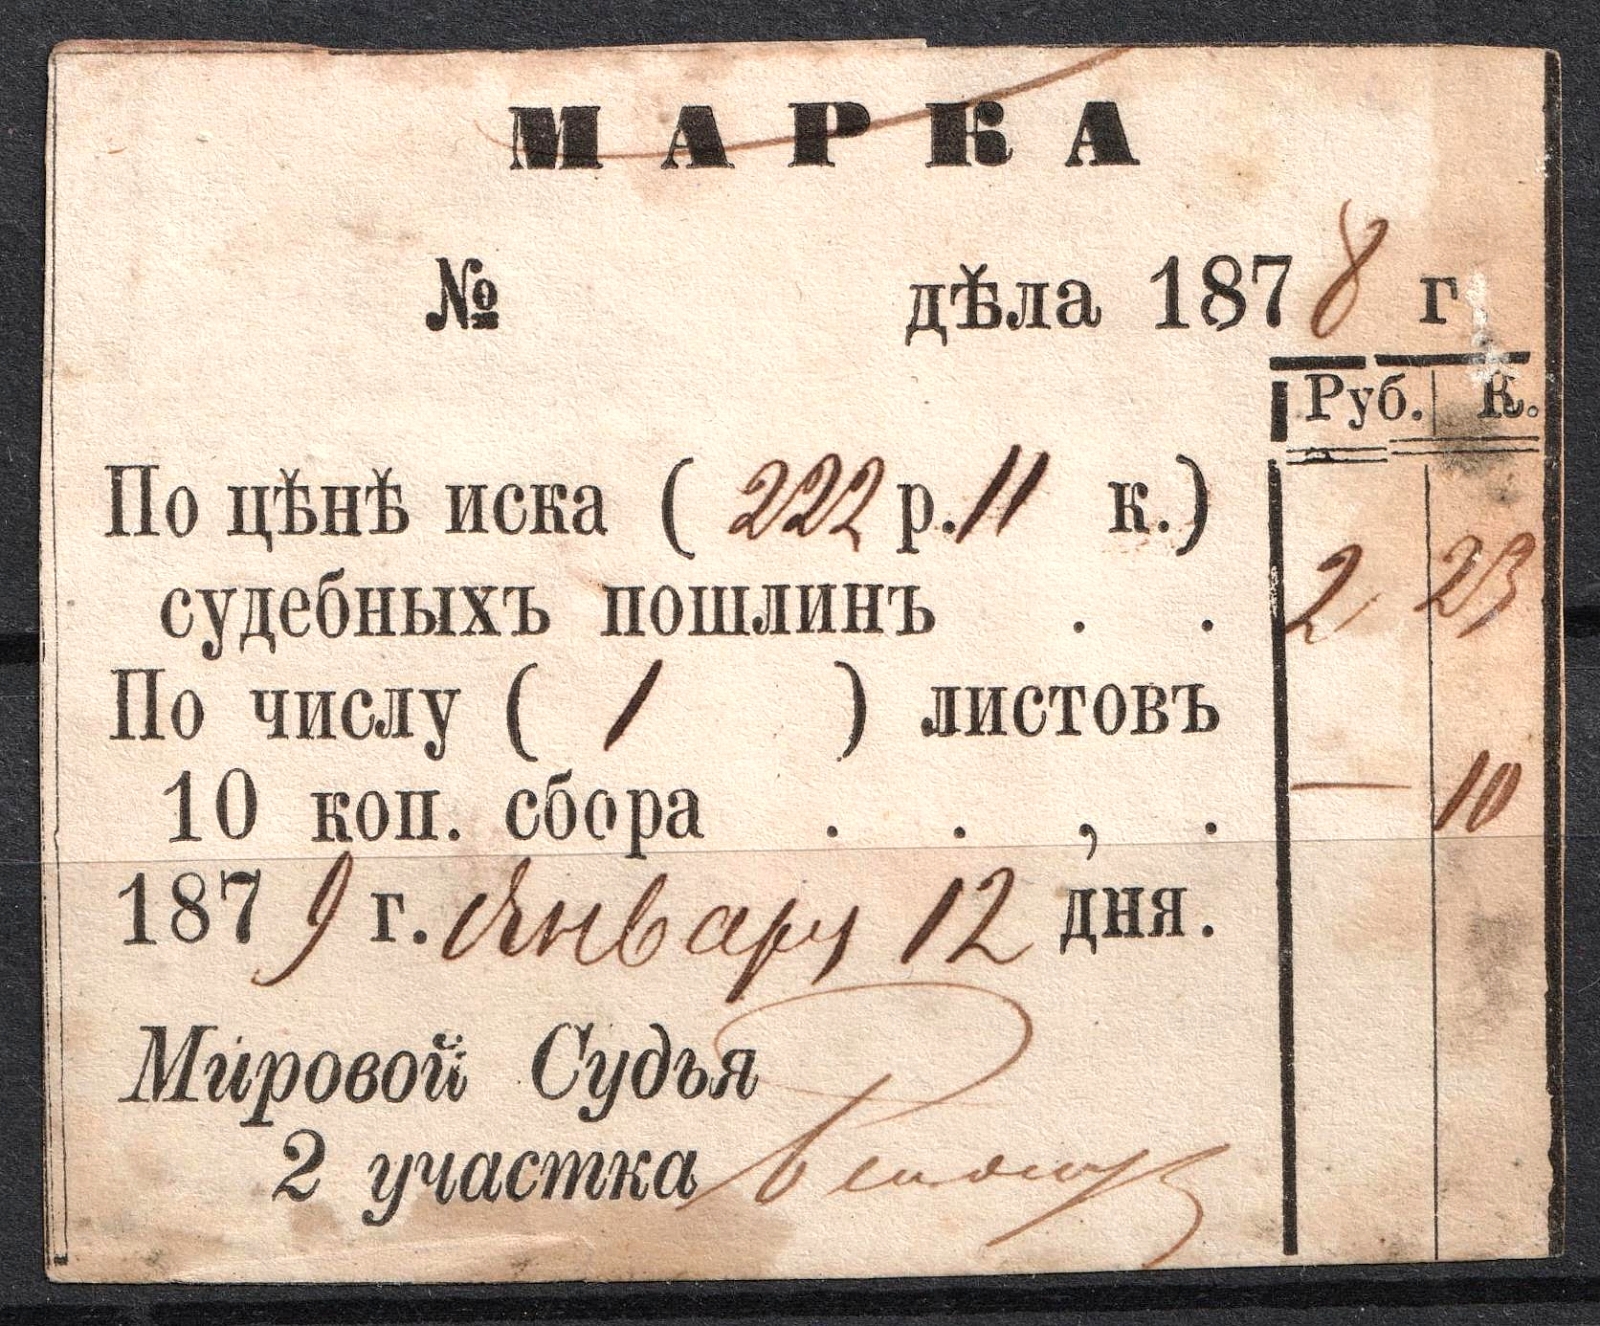 МАРКА
№ дѣла 1878 г
Руб. К.
По цѣнѣ иска ( 222 р. 11 к.)
судебныхъ пошлинъ . . 2 23
По числу ( 1 ) листовъ
10 коп. сбора . . , . — 10
1879 г. Января 12 дня.
Мировой Судья
2 участка